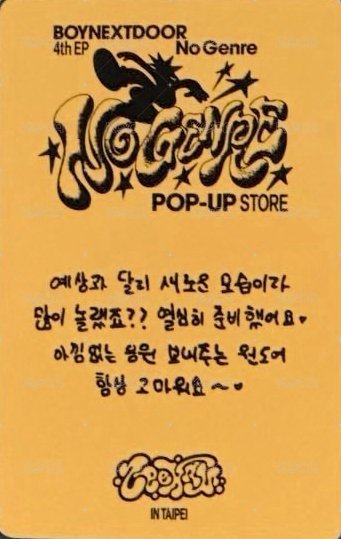 BOYNEXTDOOR
4th EP No Genre
NO GENRE
POP-UP STORE
예상과 달리 새로운 모습이라
많이 놀랬죠?? 열심히 준비했어요♥
아낌없는 응원 보내주는 원도어
항상 고마워요~♥
IN TAIPEI